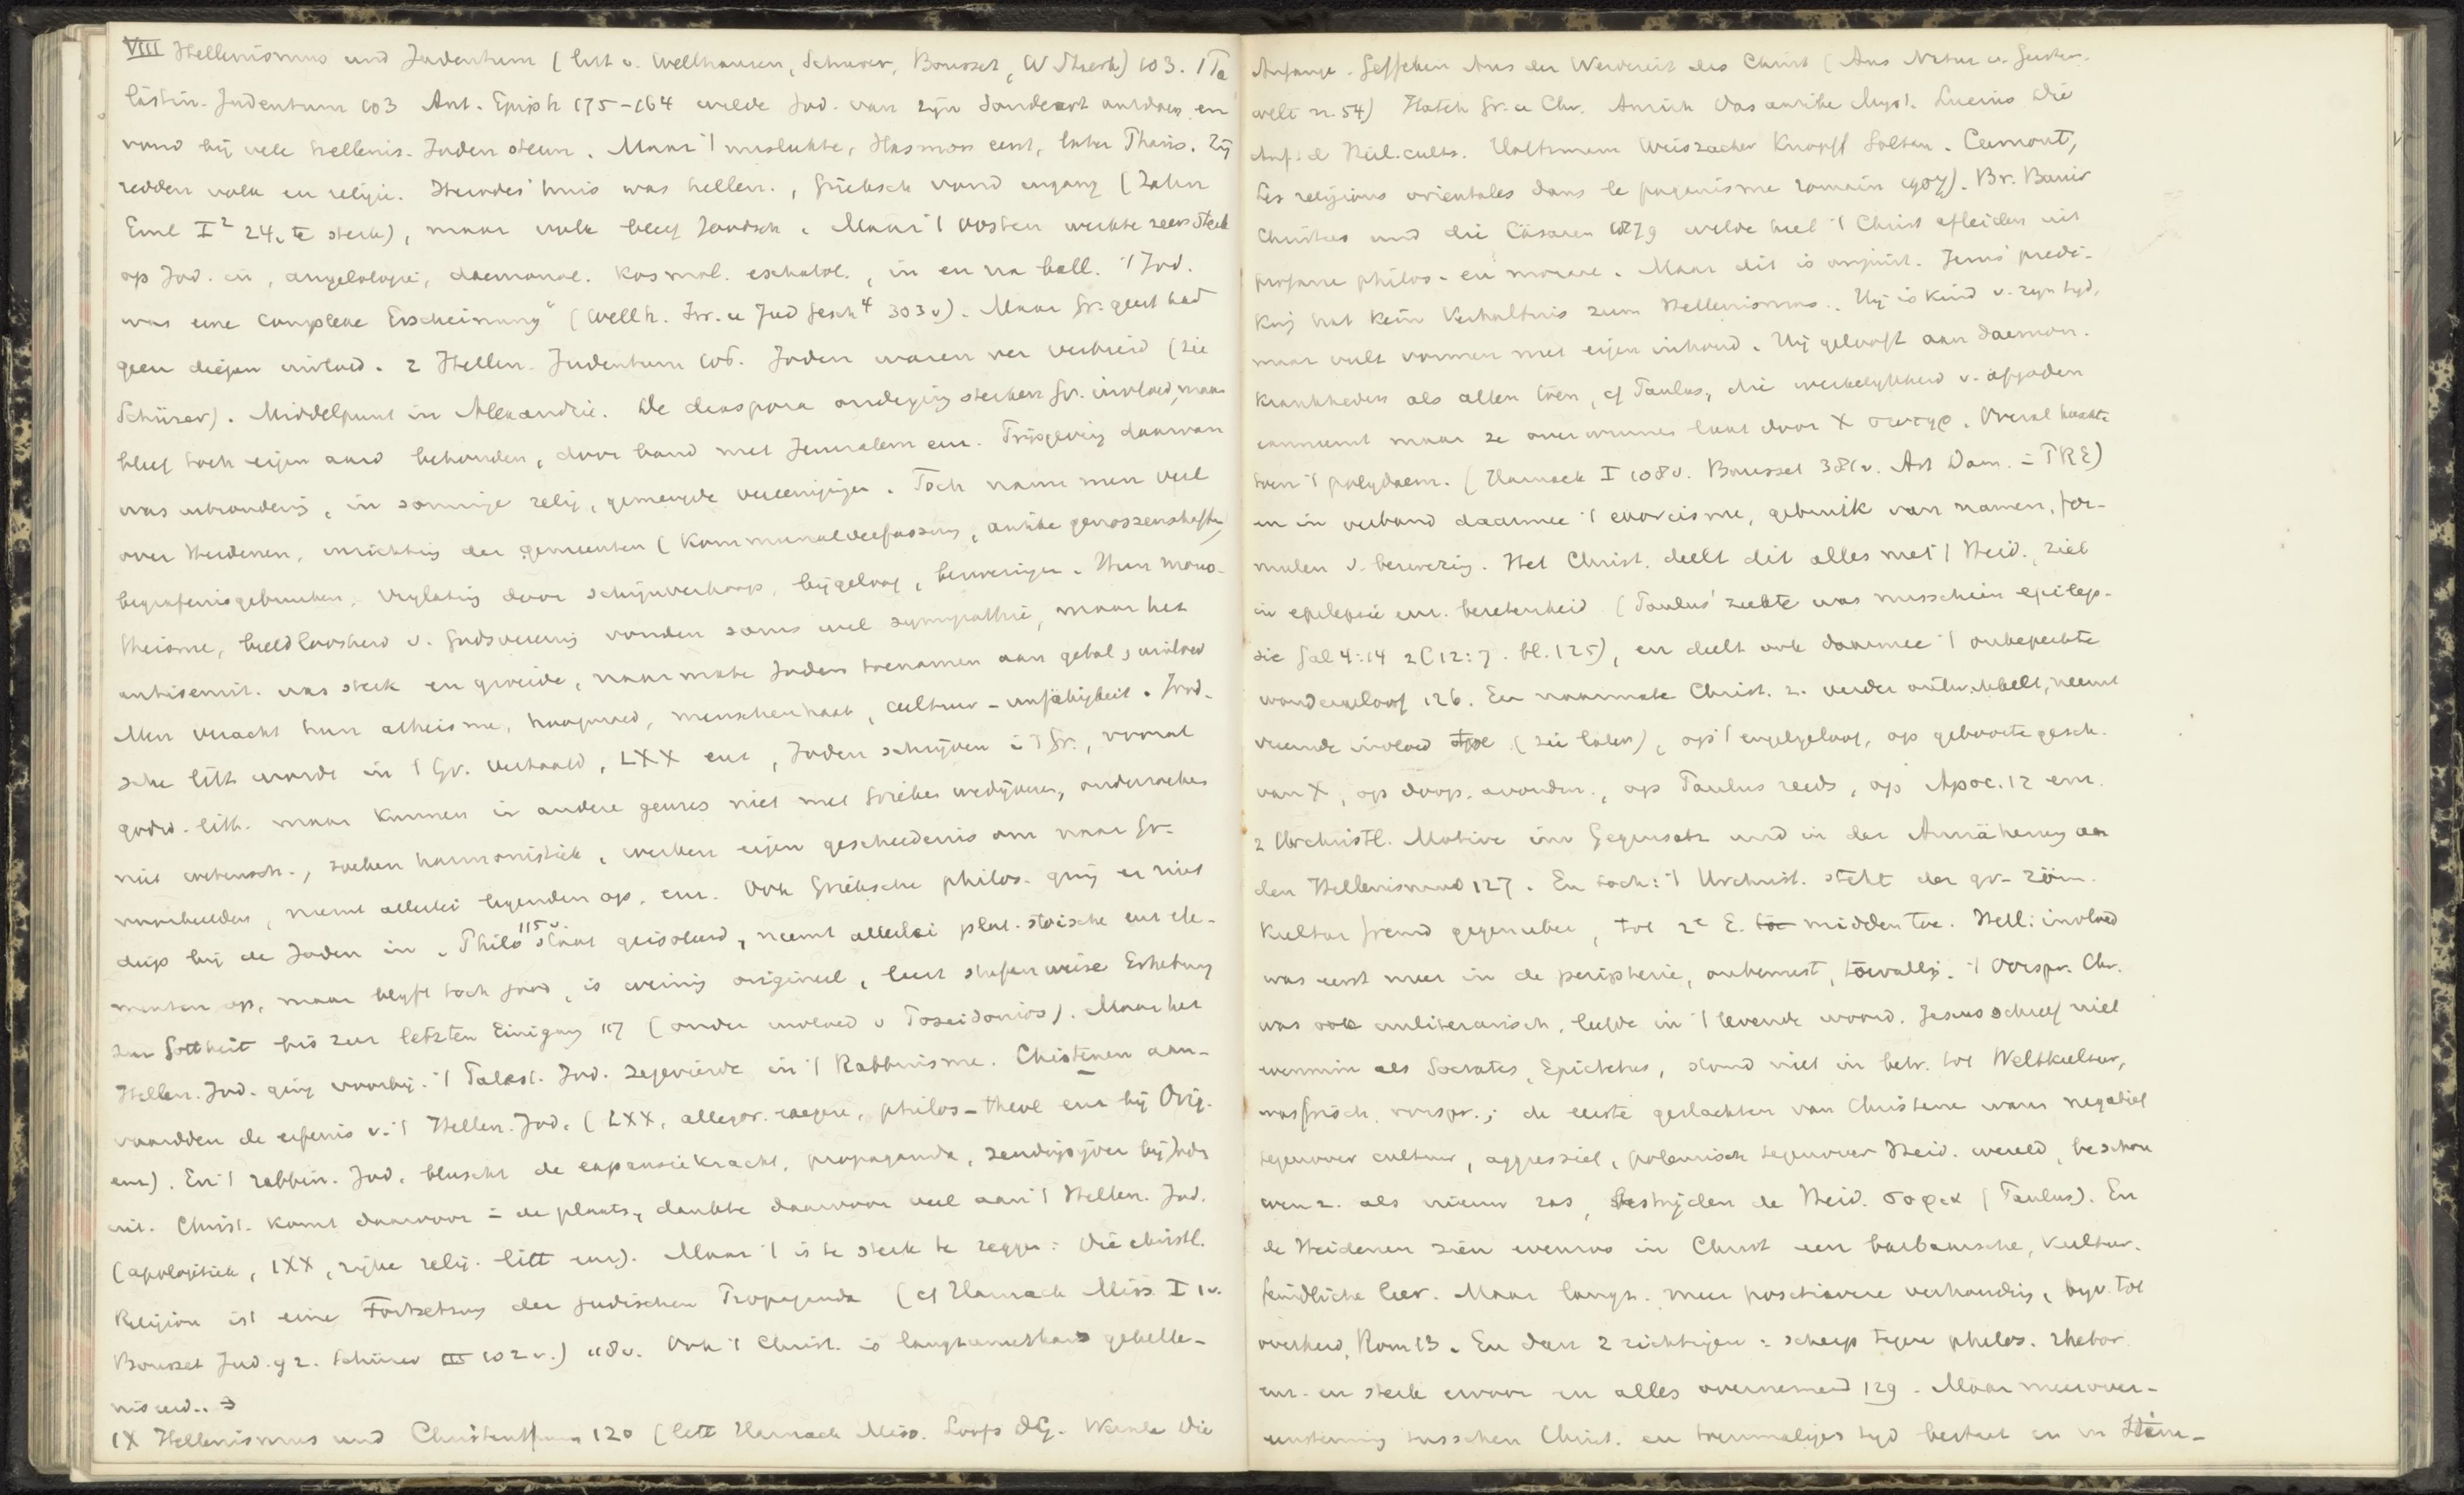 VIII Hellenismus und Judentum (litt v. Wellhausen, Schürer, Bousset, W Staerk) 103. 1 Pa
lästin. Judentum 103 Ant. Epiph 175-164 wilde Jod. van zijn aard ontdoen en
vond bij vele hellenis. Joden steun. Maar 't mislukte, Hasmon eerst, later Pharis. Zij
redden volk en religie. Herodes' huis was hellen., Grieksch vond ingang (Zahn
Einl I² 24, te sterk), maar volk bleef Joodsch. Maar 't Oosten werkte zeer sterk
op Jod. in, angelologie, daemonol. kosmol. eschatol., in en na ball. 't Jod.
was eine complexe Erscheinung" (Wellh. Isr. u Jud Gesch⁴ 303v). Maar Gr. geest had
geen diepen invloed. 2 Hellen. Judentum 106. Joden waren ver verbreid (zie
Schürer). Middelpunt in Alexandrië. De diaspora onderging sterken Gr. invloed, maar
bleef toch eigen aard behouden, door band met Jeruzalem enz. Prijsgeving daarvan
was uitzondering, in sommige relig. gemengde vereenigingen. Toch nam men veel
over Heidenen, inrichting der gemeenten (Kommunalverfassung, antike genossenschaften)
begrafenisgebruiken, vrijlating door schijnverkoop, bijgeloof, bezweringen. Hun mono-
theisme, beeldloosheid v. Godsvereering vonden soms wel sympathie, maar het
antisemit. was sterk en groeide, naarmate Joden toenamen aan getal, invloed
Men veracht hun atheisme, hoogmoed, menschenhaat, cultuur-unfähigkeit. Jood-
sche litt wordt in 't Gr. vertaald, LXX enz, Joden schrijven in 't Gr., vooral
godsd. litt. maar kunnen in andere genres niet met Grieken wedijveren, onderzoeken
niet wetensch., zoeken harmonistiek, werken eigen geschiedenis om naar Gr.
voorbeelden, nemen allerlei legenden op, enz. Ook Grieksche philos. ging er niet
diep bij de Joden in. Philo 115v. staat geisoleerd, neemt allerlei plat. stoische enz ele-
menten op, maar blijft toch Jood, is weinig origineel, leert stufenweise Erhebung
zur Gottheit bis zur letzten Einigung 117 (onder invloed v Poseidonios). Maar het
Hellen. Jod. ging voorbij. 't Palest. Jod. zegevierde in 't Rabbinisme. Christenen aan-
vaardden de erfenis v. 't Hellen. Jod. (LXX, allegor. exegese, philos-theol enz bij Orig.
enz). En 't rabbin. Jod. bluscht de expansiekracht, propaganda, zendingsijver bij Jodn
uit. Christ. komt daarvoor in de plaats, dankte daarvoor veel aan 't Hellen. Jod.
(apologetiek, LXX, rijke relig. litt enz). Maar 't is te sterk te zeggen: die christl.
Religion ist eine Fortsetzung der judischen Propaganda (cf Harnack Miss. I 1v.
Bousset Jud. 92. Schürer III 102v.) 118v. Ook 't Christ. is langzamerhand gehelle-
niseerd. →
IX Hellenismus und Christenthum 120 (litt Harnack Miss. Loofs DG. Wernle Die
Anfange. Geffcken Aus der Werdezeit des Christ (Aus Natur u. Geistes-
welt n. 54) Hatch Gr. u Chr. Anrich Das antike Myst. Lucius Die
Anf. d Heil.cults. Holtzmann Weiszäcker Knopf Soltau. Cumont,
Les religions orientales dans le paganisme romain 1907). Br. Bauer
Christus und die Cäsaren 1879 wilde heel 't Christ afleiden uit
profane philos. en moraal. Maar dit is onjuist. Jezus' predi-
king hat kein Verhältnis zum Hellenismus. Hij is kind v. zijn tijd,
maar vult vormen met eigen inhoud. Hij gelooft aan daemon.
krankheden als allen toen, cf Paulus, die werkelijkheid v. afgoden
aanneemt maar ze overwonnen laat door X σωτηρ. Overal heerschte
toen 't polydaem. (Harnack I 108v. Bousset 381v. Art Daem. in PRE)
en in verband daarmee 't exorcisme, gebruik van namen, for-
mulen v. bezwering. Het Christ. deelt dit alles met 't Heid., ziet
in epilepsie enz. bezetenheid (Paulus' ziekte was misschien epilep-
sie Gal 4:14 2 C 12:7. bl. 125), en deelt ook daarmee 't onbeperkte
wondergeloof 126. En naarmate Christ. z. verder ontwikkelt, neemt
vreemde invloed toe (zie later), op 't engelgeloof, op geboortegesch.
van X, op doop. avondm., op Paulus reeds, op Apoc. 12 enz.
2 Urchristl. Motive im Gegensatz und in der Annäherung an
den Hellenismus 127. En toch: 't Urchrist. steht der gr.- röm.
Kultur fremd gegenüber, tot 2e E. midden toe. Hell. invloed
was eerst meer in de peripherie, onbewust, toevallig. 't Oorspr. Chr.
was ook unliterarisch, leefde in 't levende woord. Jezus schreef niet
evenmin als Socrates, Epictetus, stond niet in betr. tot Weltkultur,
was frisch, oorspr.; de eerste geslachten van Christene waren negatief
tegenover cultuur, aggressief, polemisch tegenover Heid. wereld, beschou
wen z. als nieuw ras, bestrijden de Heid. σοφια (Paulus). En
de Heidenen zien evenzoo in Christ een barbaarsche, Kultur-
feindliche leer. Maar langz. meer positievere verhouding, bijv. tot
overheid, Rom 13. En dan 2 richtingen: scherp tegen philos. rhetor.
enz. en sterk ervoor en alles overnemend 129. Maar meer over-
eenstemming tusschen Christ. en toenmaligen tijd bestaat er in